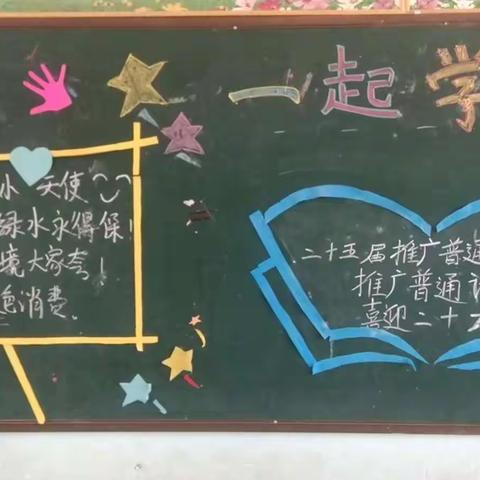 一起学
小天使
绿水永得保!
境大家夸!
消费。
二十五届推广普通
推广普通
喜迎二十